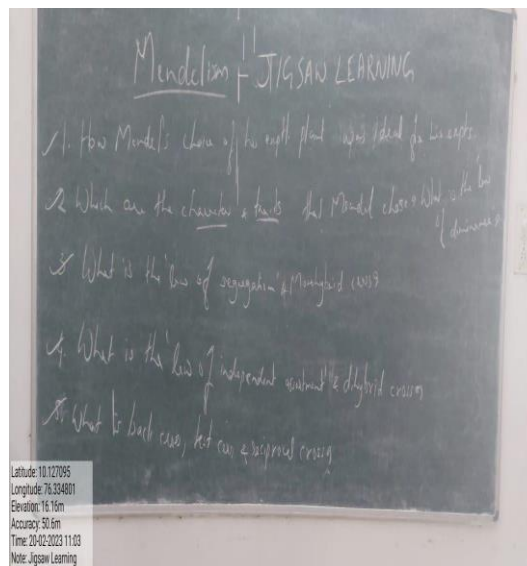 Mendelism - JIGSAW LEARNING
1. How Mendel's choice of his exptl plant was ideal for his expts.
2. Which are the character & traits that Mendel chose & What is the law
of dominance?
3. What is the 'law of segregation' & Monohybrid cross?
4. What is the 'law of independent assortment' & dihybrid cross?
5. What is back cross, test cross & reciprocal cross?
Latitude: 10.127095
Longitude: 76.334801
Elevation: 16.16m
Accuracy: 50.6m
Time: 20-02-2023 11:03
Note: Jigsaw Learning